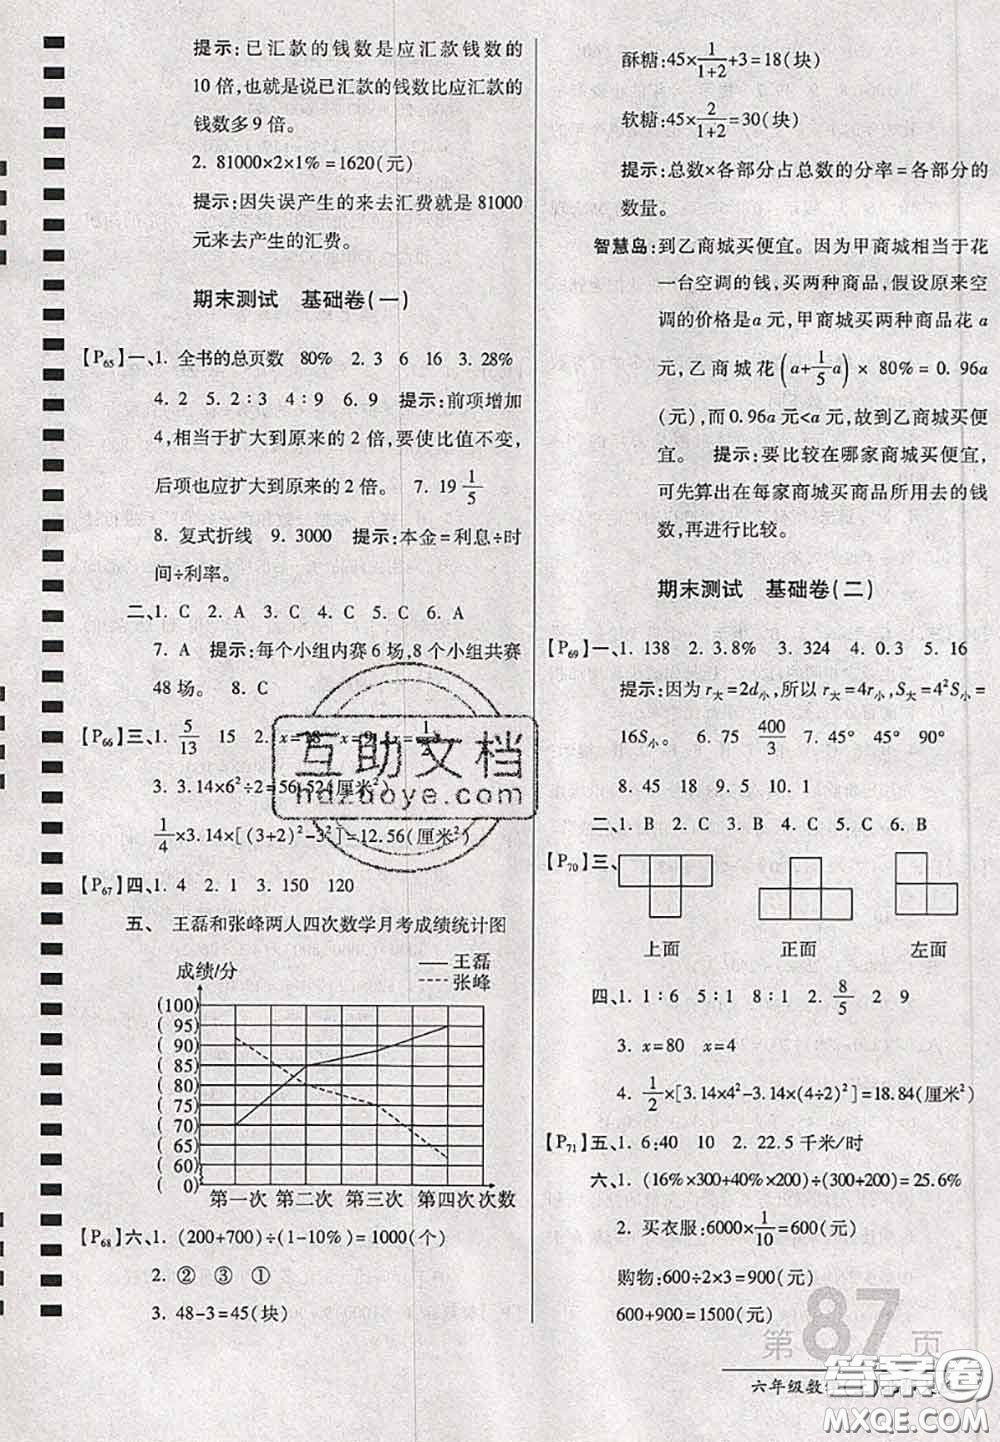 提示:已汇款的钱数是应汇款钱数的
10倍,也就是说已汇款的钱数比应汇款的
钱数多9倍。
2. 81000×2×1%=1620(元)
提示:因失误产生的来去汇费就是81000
元来去产生的汇费。
期末测试 基础卷(一)
【P65】一、1. 全书的总页数 80% 2. 3 6 16 3. 28%
4. 2 5. 2∶3 4∶9 6. 9 提示:前项增加
4,相当于扩大到原来的2倍,要使比值不变,
后项也应扩大到原来的2倍。 7. 19 1/5
8. 复式折线 9. 3000 提示:本金=利息÷时
间÷利率。
二、1. C 2. A 3. C 4. C 5. C 6. A
7. A 提示:每个小组内赛6场,8个小组共赛
48场。 8. C
【P66】三、1. 5/13 15 2. x=18 x=9 x=1/2
3. 3.14×6²÷2=56.524(厘米²)
1/4×3.14×[(3+2)²-3²]=12.56(厘米²)
【P67】四、1. 4 2. 1 3. 150 120
五、 王磊和张峰两人四次数学月考成绩统计图
成绩/分
王磊
张峰
(100)
( 95)
( 90)
( 85)
( 80)
( 75)
( 70)
( 65)
( 60)
( 0)
第一次 第二次 第三次 第四次 次数
【P68】六、1. (200+700)÷(1-10%)=1000(个)
2. ② ③ ①
3. 48-3=45(块)
酥糖:45×1/(1+2)+3=18(块)
软糖:45×2/(1+2)=30(块)
提示:总数×各部分占总数的分率=各部分的
数量。
智慧岛:到乙商城买便宜。因为甲商城相当于花
一台空调的钱,买两种商品,假设原来空
调的价格是a元,甲商城买两种商品花a
元,乙商城花(a+1/5a)×80%=0.96a
(元),而0.96a元<a元,故到乙商城买便
宜。 提示:要比较在哪家商城买便宜,
可先算出在每家商城买商品所用去的钱
数,再进行比较。
期末测试 基础卷(二)
【P69】一、1. 138 2. 3.8% 3. 324 4. 0.3 5. 16
提示:因为r大=2d小,所以r大=4r小,S大=4²S小=
16S小。 6. 75 400/3 7. 45° 45° 90°
8. 45 18 9. 5 10. 1
二、1. B 2. B 3. B 4. C 5. C 6. B
【P70】三、
上面 正面 左面
四、1. 1∶6 5∶1 8∶1 2. 8/5 2 9
3. x=80 x=4
4. 1/2×[3.14×4²-3.14×(4÷2)²]=18.84(厘米²)
【P71】五、1. 6:40 10 2. 22.5千米/时
六、1. (16%×300+40%×200)÷(300+200)=25.6%
2. 买衣服:6000×1/10=600(元)
购物:600÷2×3=900(元)
600+900=1500(元)
第87页
六年级数学
互助文档
hdzuoye.com
答案圈
MXQE.COM